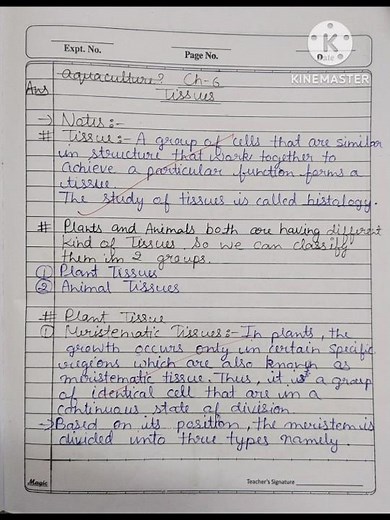 Expt. No.
Page No.
Date
KINEMASTER
aquaculture? Ch-6
Ans
Tissues
→ Notes:-
# Tissue:- A group of cells that are similar
in structure that work together to
achieve a particular function forms a
tissue.
The study of tissues is called histology.
# Plants and Animals both are having different
kind of Tissues. So we can classify
them in 2 groups.
① Plant Tissues
② Animal Tissues
# Plant Tissue
① Meristematic Tissues:- In plants, the
growth occurs only in certain specific
regions which are also known as
meristematic tissue. Thus, it is a group
of identical cell that are in a
continuous state of division
→ Based on its position, the meristem is
divided into three types namely
Magic
Teacher's Signature